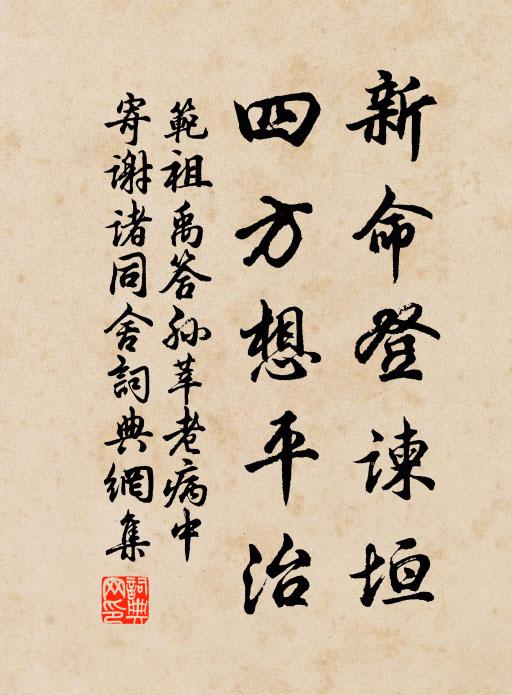 新命登諫垣
四方想平治
範祖禹答孫莘老病中
寄謝諸同舍詞典網集
詞典網印